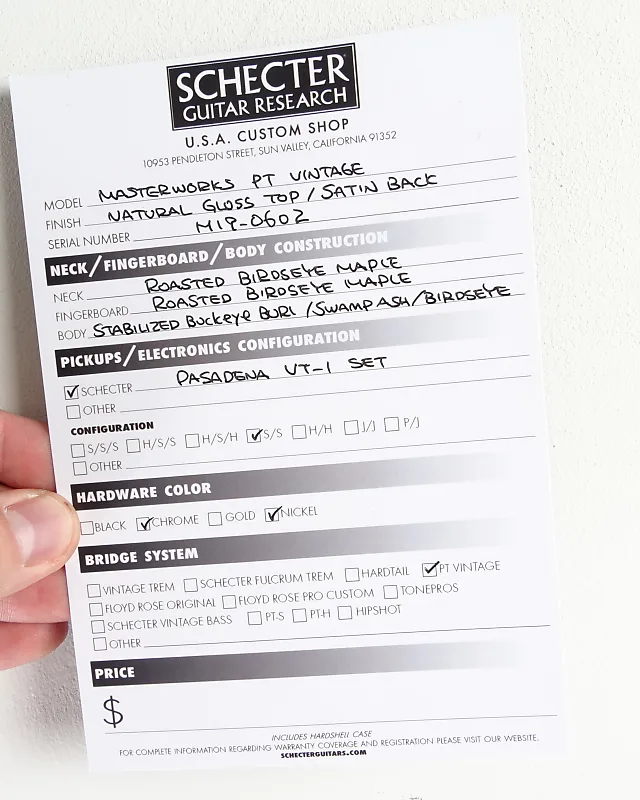 SCHECTER
GUITAR RESEARCH
U.S.A. CUSTOM SHOP
10953 PENDLETON STREET, SUN VALLEY, CALIFORNIA 91352
MODEL MASTERWORKS PT VINTAGE
FINISH NATURAL GLOSS TOP / SATIN BACK
SERIAL NUMBER M19-0602
NECK/FINGERBOARD/BODY CONSTRUCTION
NECK ROASTED BIRDSEYE MAPLE
FINGERBOARD ROASTED BIRDSEYE MAPLE
BODY STABILIZED Buckeye BURL / SWAMP ASH / BIRDSEYE
PICKUPS/ELECTRONICS CONFIGURATION
SCHECTER PASADENA VT-1 SET
OTHER
CONFIGURATION
S/S/S H/S/S H/S/H S/S H/H J/J P/J
OTHER
HARDWARE COLOR
BLACK CHROME GOLD NICKEL
BRIDGE SYSTEM
VINTAGE TREM SCHECTER FULCRUM TREM HARDTAIL PT VINTAGE
FLOYD ROSE ORIGINAL FLOYD ROSE PRO CUSTOM TONEPROS
SCHECTER VINTAGE BASS PT-S PT-H HIPSHOT
OTHER
PRICE
$
INCLUDES HARDSHELL CASE
FOR COMPLETE INFORMATION REGARDING WARRANTY COVERAGE AND REGISTRATION PLEASE VISIT OUR WEBSITE.
SCHECTERGUITARS.COM